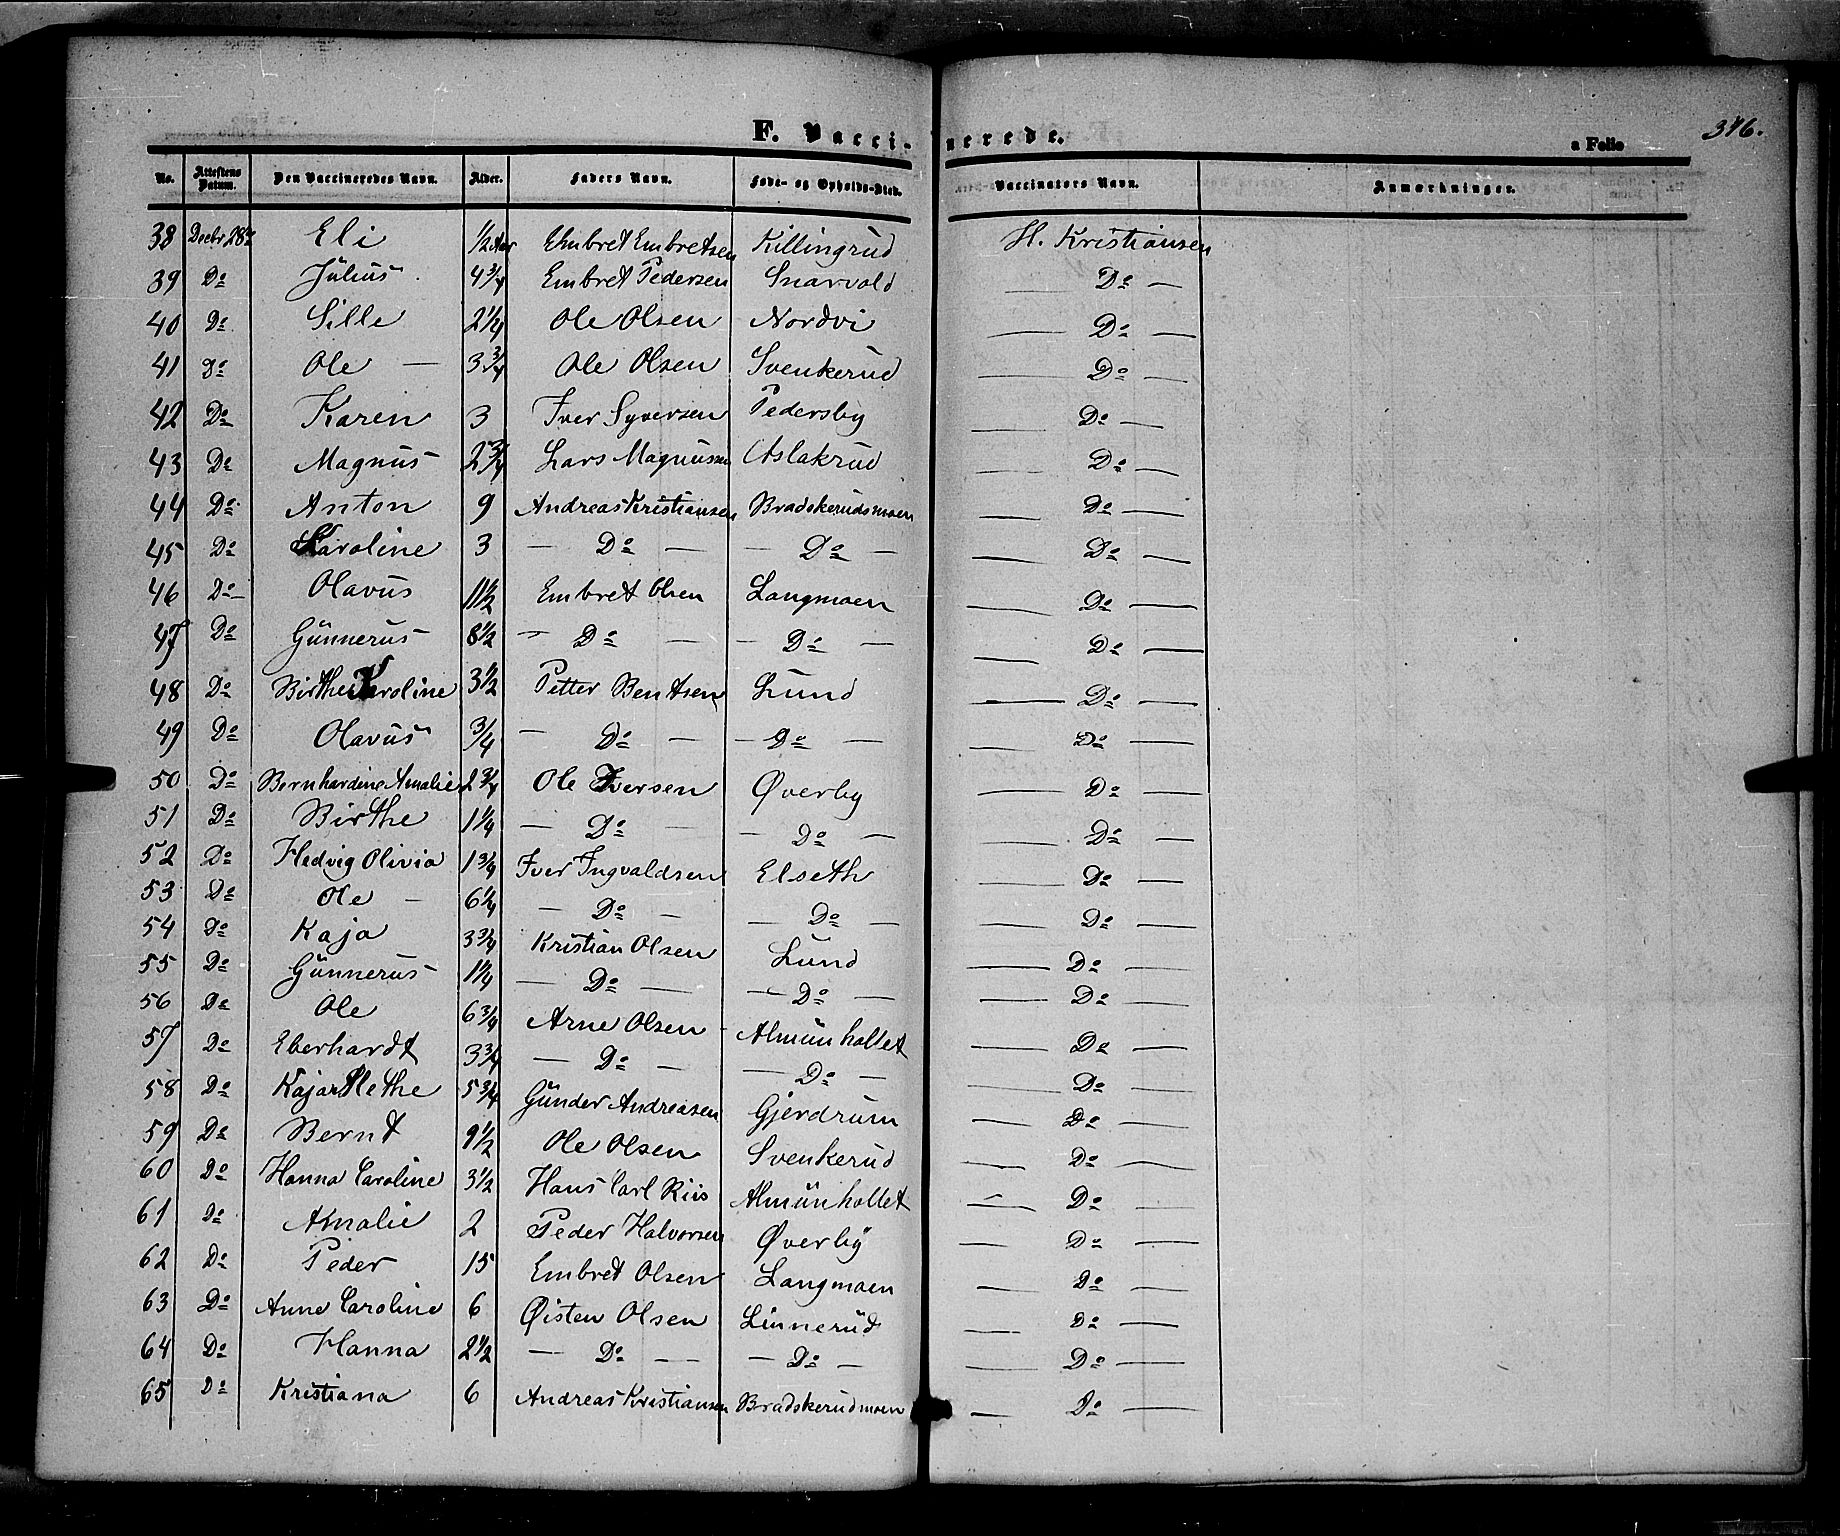 F. Vaccinerede.
a Folio 346.
No. Attestens Datum. Den Vaccineredes Navn. Alder. Faders Navn. Føde- og Opholds-Sted. Vaccinators Navn. Anmærkninger.
38 Decbr 28de Eli 1/2 Aar Embret Embretsen Killingrud H. Kristiansen
39 Do Julius 4 3/4 Embret Pedersen Snarvold — Do —
40 Do Sille 2 1/4 Ole Olsen Nordvi — Do —
41 Do Ole — 3 3/4 Ole Olsen Svenkerud — Do —
42 Do Karen 3 Iver Syversen Pedersby — Do —
43 Do Magnus 2 3/4 Lars Magnussen Aslakrud — Do —
44 Do Anton 9 Andreas Kristiansen Bradskerudsmoen — Do —
45 Do Karoline 3 — Do — — Do — — Do —
46 Do Olavus 11 1/2 Embret Olsen Langmoen — Do —
47 Do Günnerus 8 1/2 — Do — — Do — — Do —
48 Do Birthe Karoline 3 1/2 Petter Bentsen Lund — Do —
49 Do Olavus 3/4 — Do — — Do — — Do —
50 Do Bernhardine Amalie 2 3/4 Ole Iversen Øverby — Do —
51 Do Birthe 1 1/4 — Do — — Do — — Do —
52 Do Hedvig Olivia 1 3/4 Iver Ingvaldsen Elseth — Do —
53 Do Ole — 6 1/4 — Do — — Do — — Do —
54 Do Kaja 3 3/4 Kristian Olsen Lund — Do —
55 Do Günnerus 1 1/4 — Do — — Do — — Do —
56 Do Ole 6 3/4 Arne Olsen Almünhaltet — Do —
57 Do Eberhardt 3 3/4 — Do — — Do — — Do —
58 Do Kaja Methe 5 3/4 Günder Andreasen Gjerdrum — Do —
59 Do Bernt 9 1/2 Ole Olsen Svenkerud — Do —
60 Do Hanna Caroline 3 1/2 Hans Carl Riis Almünhaltet — Do —
61 Do Amalie 2 Peder Halvorsen Øverby — Do —
62 Do Peder 15 Embret Olsen Langmoen — Do —
63 Do Anne Caroline 6 Øisten Olsen Linnerud — Do —
64 Do Hanna 2 1/2 — Do — — Do — — Do —
65 Do Kristiana 6 Andreas Kristiansen Bradskerudmoen — Do —